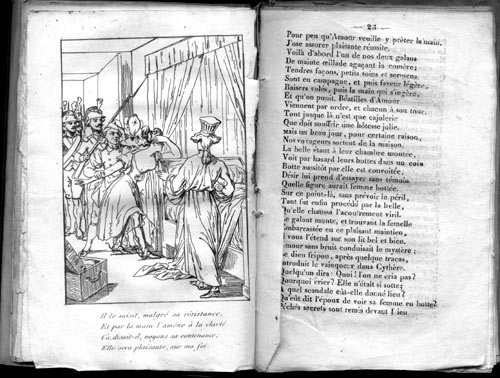 Il le saisit, malgré sa résistance,
Et par la main l'amène à la clarté
Ça, disait-il, voyons sa contenance;
Elle sera plaisante, sur ma foi.
25
Pour peu qu'Amour veuille y prêter la main,
J'ose assurer plaisante réussite.
Voilà d'abord l'un de nos deux galans
De mainte œillade agaçant la comère;
Tendres façons, petits soins et sermens
Sont en campagne, et puis faveur légère,
Baisers volés, puis la main qui s'ingère,
Et qu'on punit. Béatilles d'Amour
Viennent par ordre, et chacun à son tour.
Tout jusque là n'est que cajolerie
Que doit souffrir une hôtesse jolie.
Mais un beau jour, pour certaine raison,
Nos voyageurs sortent de la maison.
La belle étant à leur chambre montée,
Voit par hasard leurs bottes dans un coin
Botte aussitôt par elle est convoitée,
Désir lui prend d'essayer sans témoin
Quelle figure aurait femme bottée.
Sur ce point-là, sans prévoir le péril,
Tant fut enfin procédé par la belle,
Qu'elle chaussa l'accoutrement viril.
Le galant monte, et trouvant la femelle
Embarrassée en ce plaisant maintien,
vous l'étend sur son lit bel et bien.
Amour sans bruit conduisait le mystère;
Le dieu fripon, après quelque tracas,
Introduit le vainqueur dans Cythère.
Quelqu'un dira: Quoi! l'on ne cria pas?
Pourquoi crier? Elle n'était si sotte;
A quel scandale eût-elle donné lieu?
Qu'eût dit l'époux de voir sa femme en botte?
Péchés secrets sont remis devant Dieu